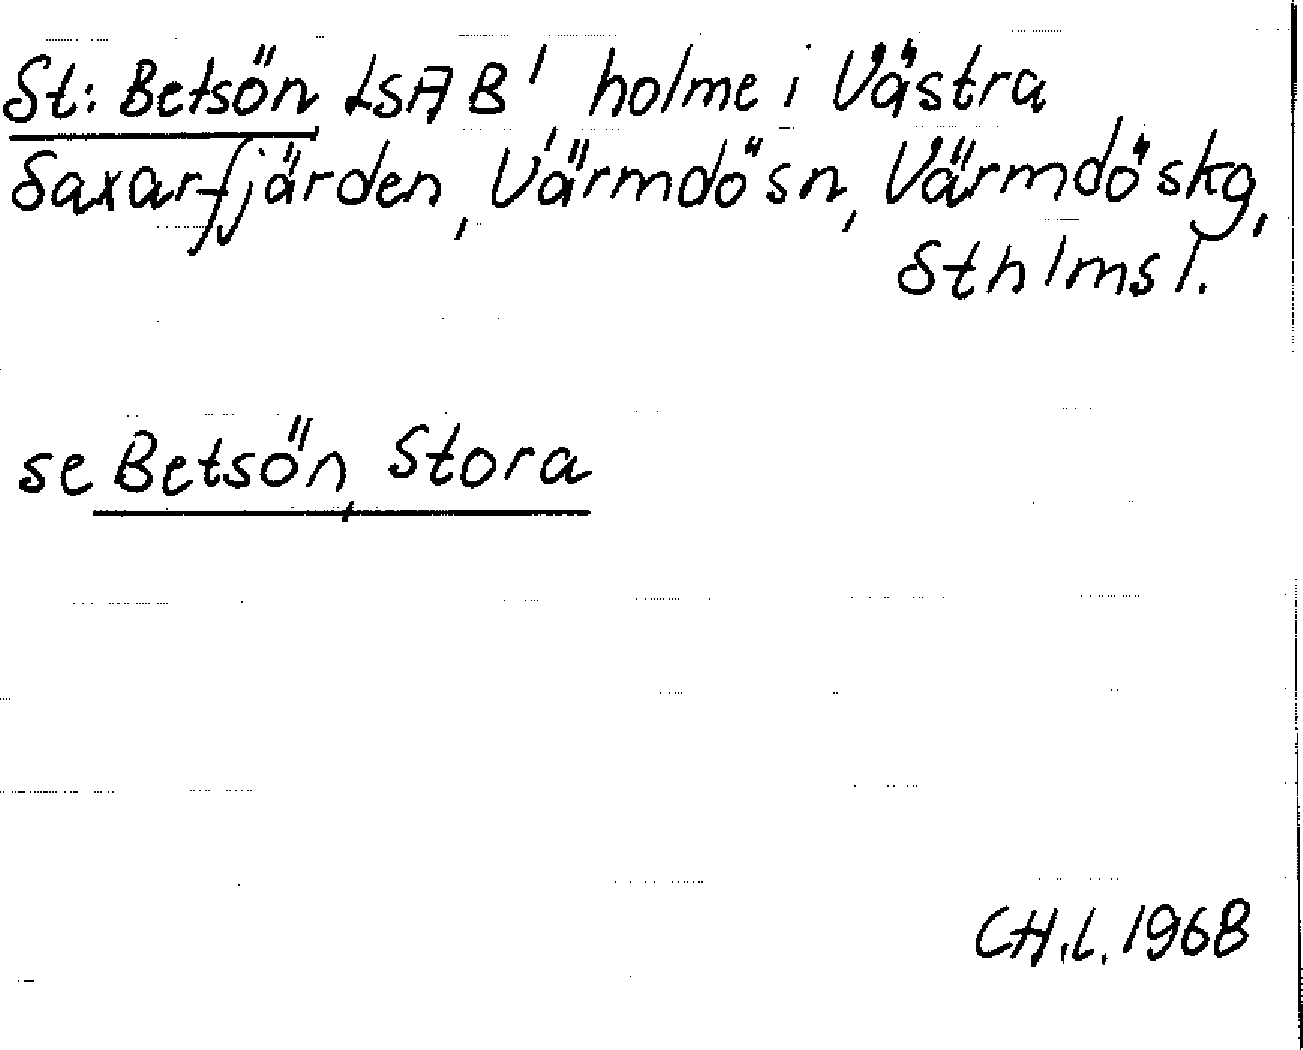 St: Betsön LSA B' holme i Västra
Saxarfjärden, Värmdösn, Värmdöskg,
Sthlmsl.
se Betsön, Stora
CH.L. 1968